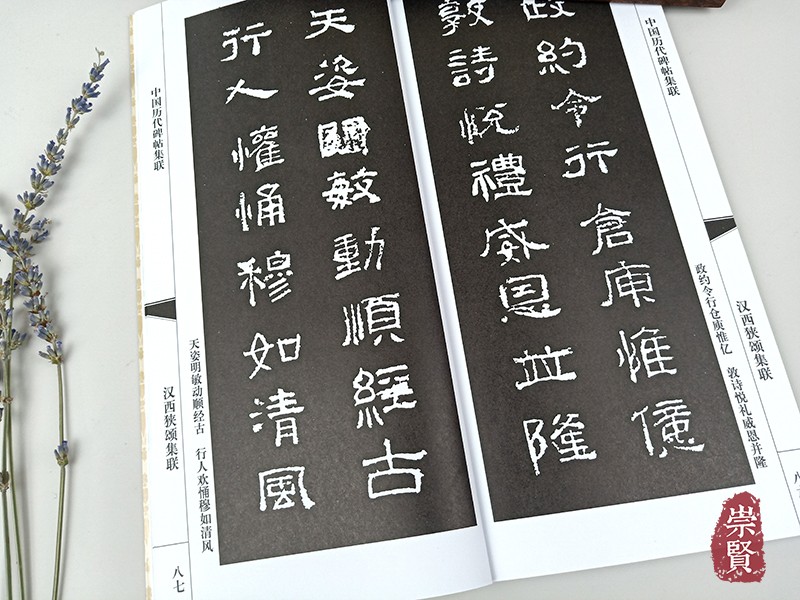 中国历代碑帖集联
汉西狭颂集联
政約令行倉庾惟億
敦詩悅禮威恩並隆
政约令行仓庾惟亿 敦诗悦礼威恩并隆
天姿明敏動順經古
行人懽悀穆如清風
天姿明敏动顺经古 行人欢悀穆如清风
中国历代碑帖集联
汉西狭颂集联
八七
崇賢